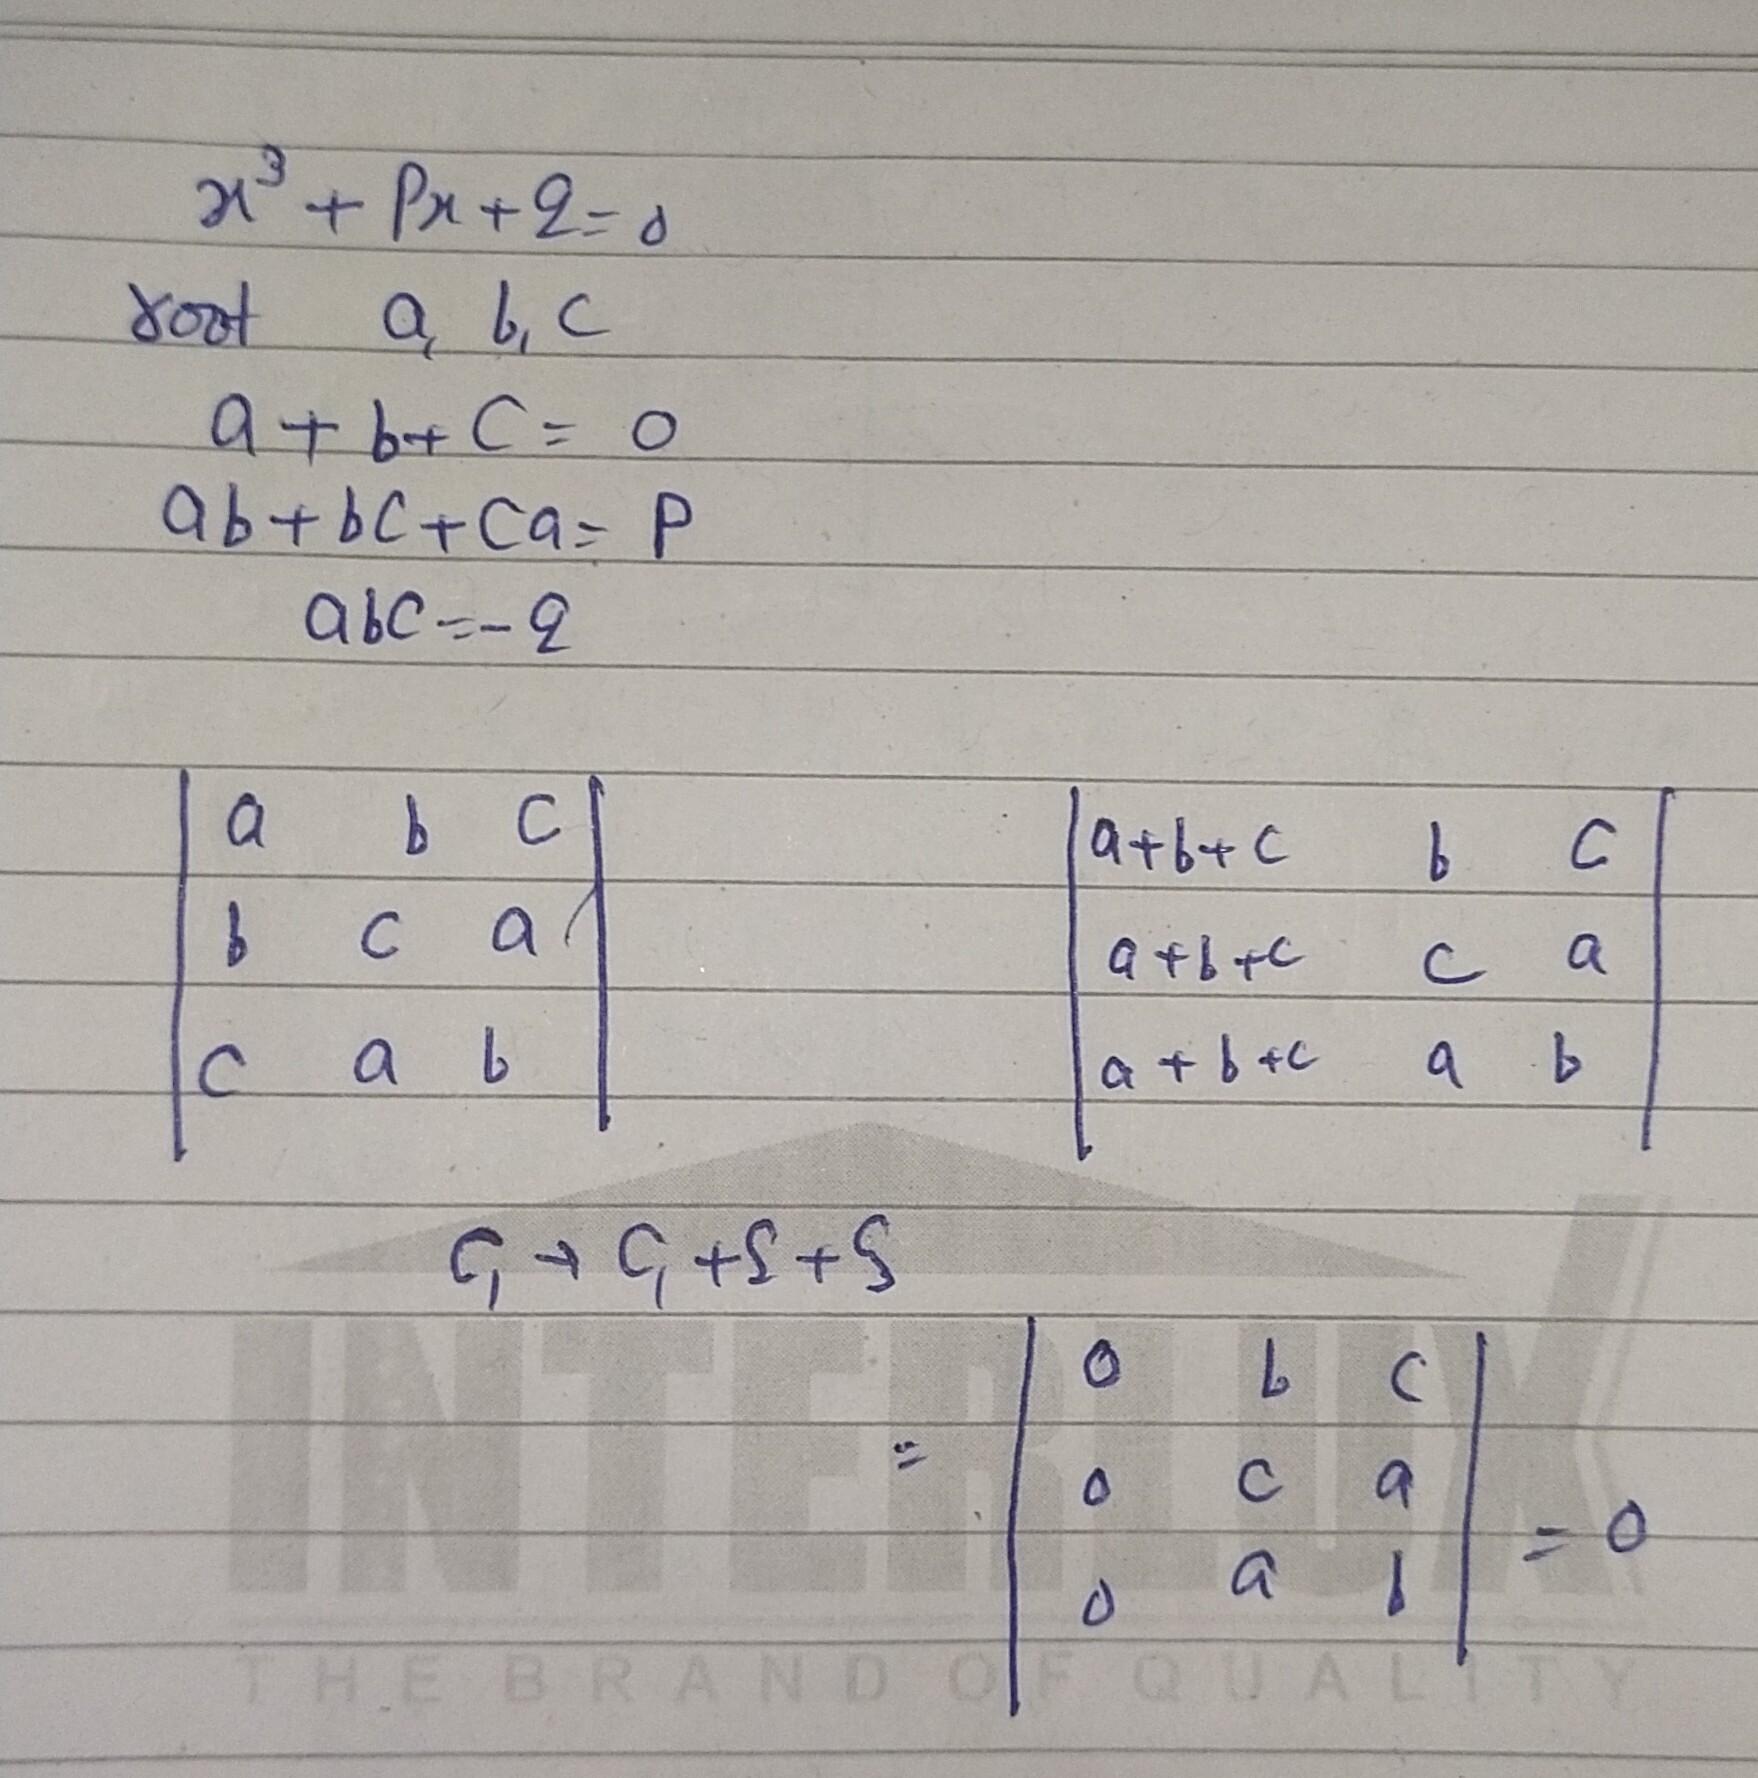 x³ + Px + q = 0
root a, b, c
a + b + c = 0
ab + bc + ca = P
abc = - q
| a b c |
| b c a |
| c a b |
| a+b+c b c |
| a+b+c c a |
| a+b+c a b |
C₁ → C₁ + C₂ + C₃
= | 0 b c |
| 0 c a | = 0
| 0 a b |
INTERLUX
THE BRAND OF QUALITY